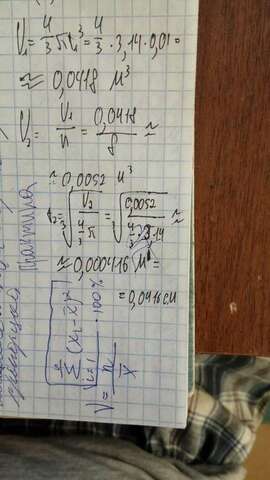 V₁ = 4/3 πr³ = 4/3 · 3,14 · 0,01 =
≈ 0,0418 м³
V₂ = V₁/n = 0,0418/8 ≈
≈ 0,0052 м³
r₂ = ³√(V₂/(4/3 π)) = ³√(0,0052/(4/3 · 3,14)) ≈
≈ 0,000416 м =
= 0,0416 см
V = √(Σ(xᵢ - x̄)²/n)/x̄ · 100%